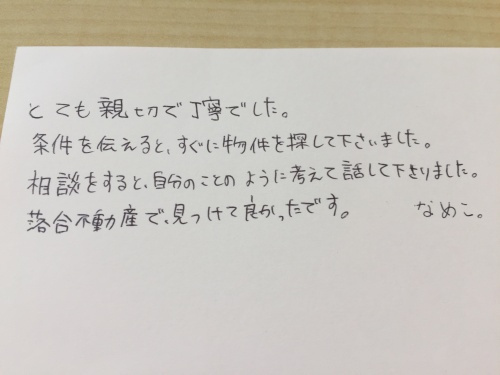 とても親切で丁寧でした。
条件を伝えると、すぐに物件を探して下さいました。
相談をすると、自分のことのように考えて話して下さりました。
落合不動産で、見つけて良かったです。 なめこ。